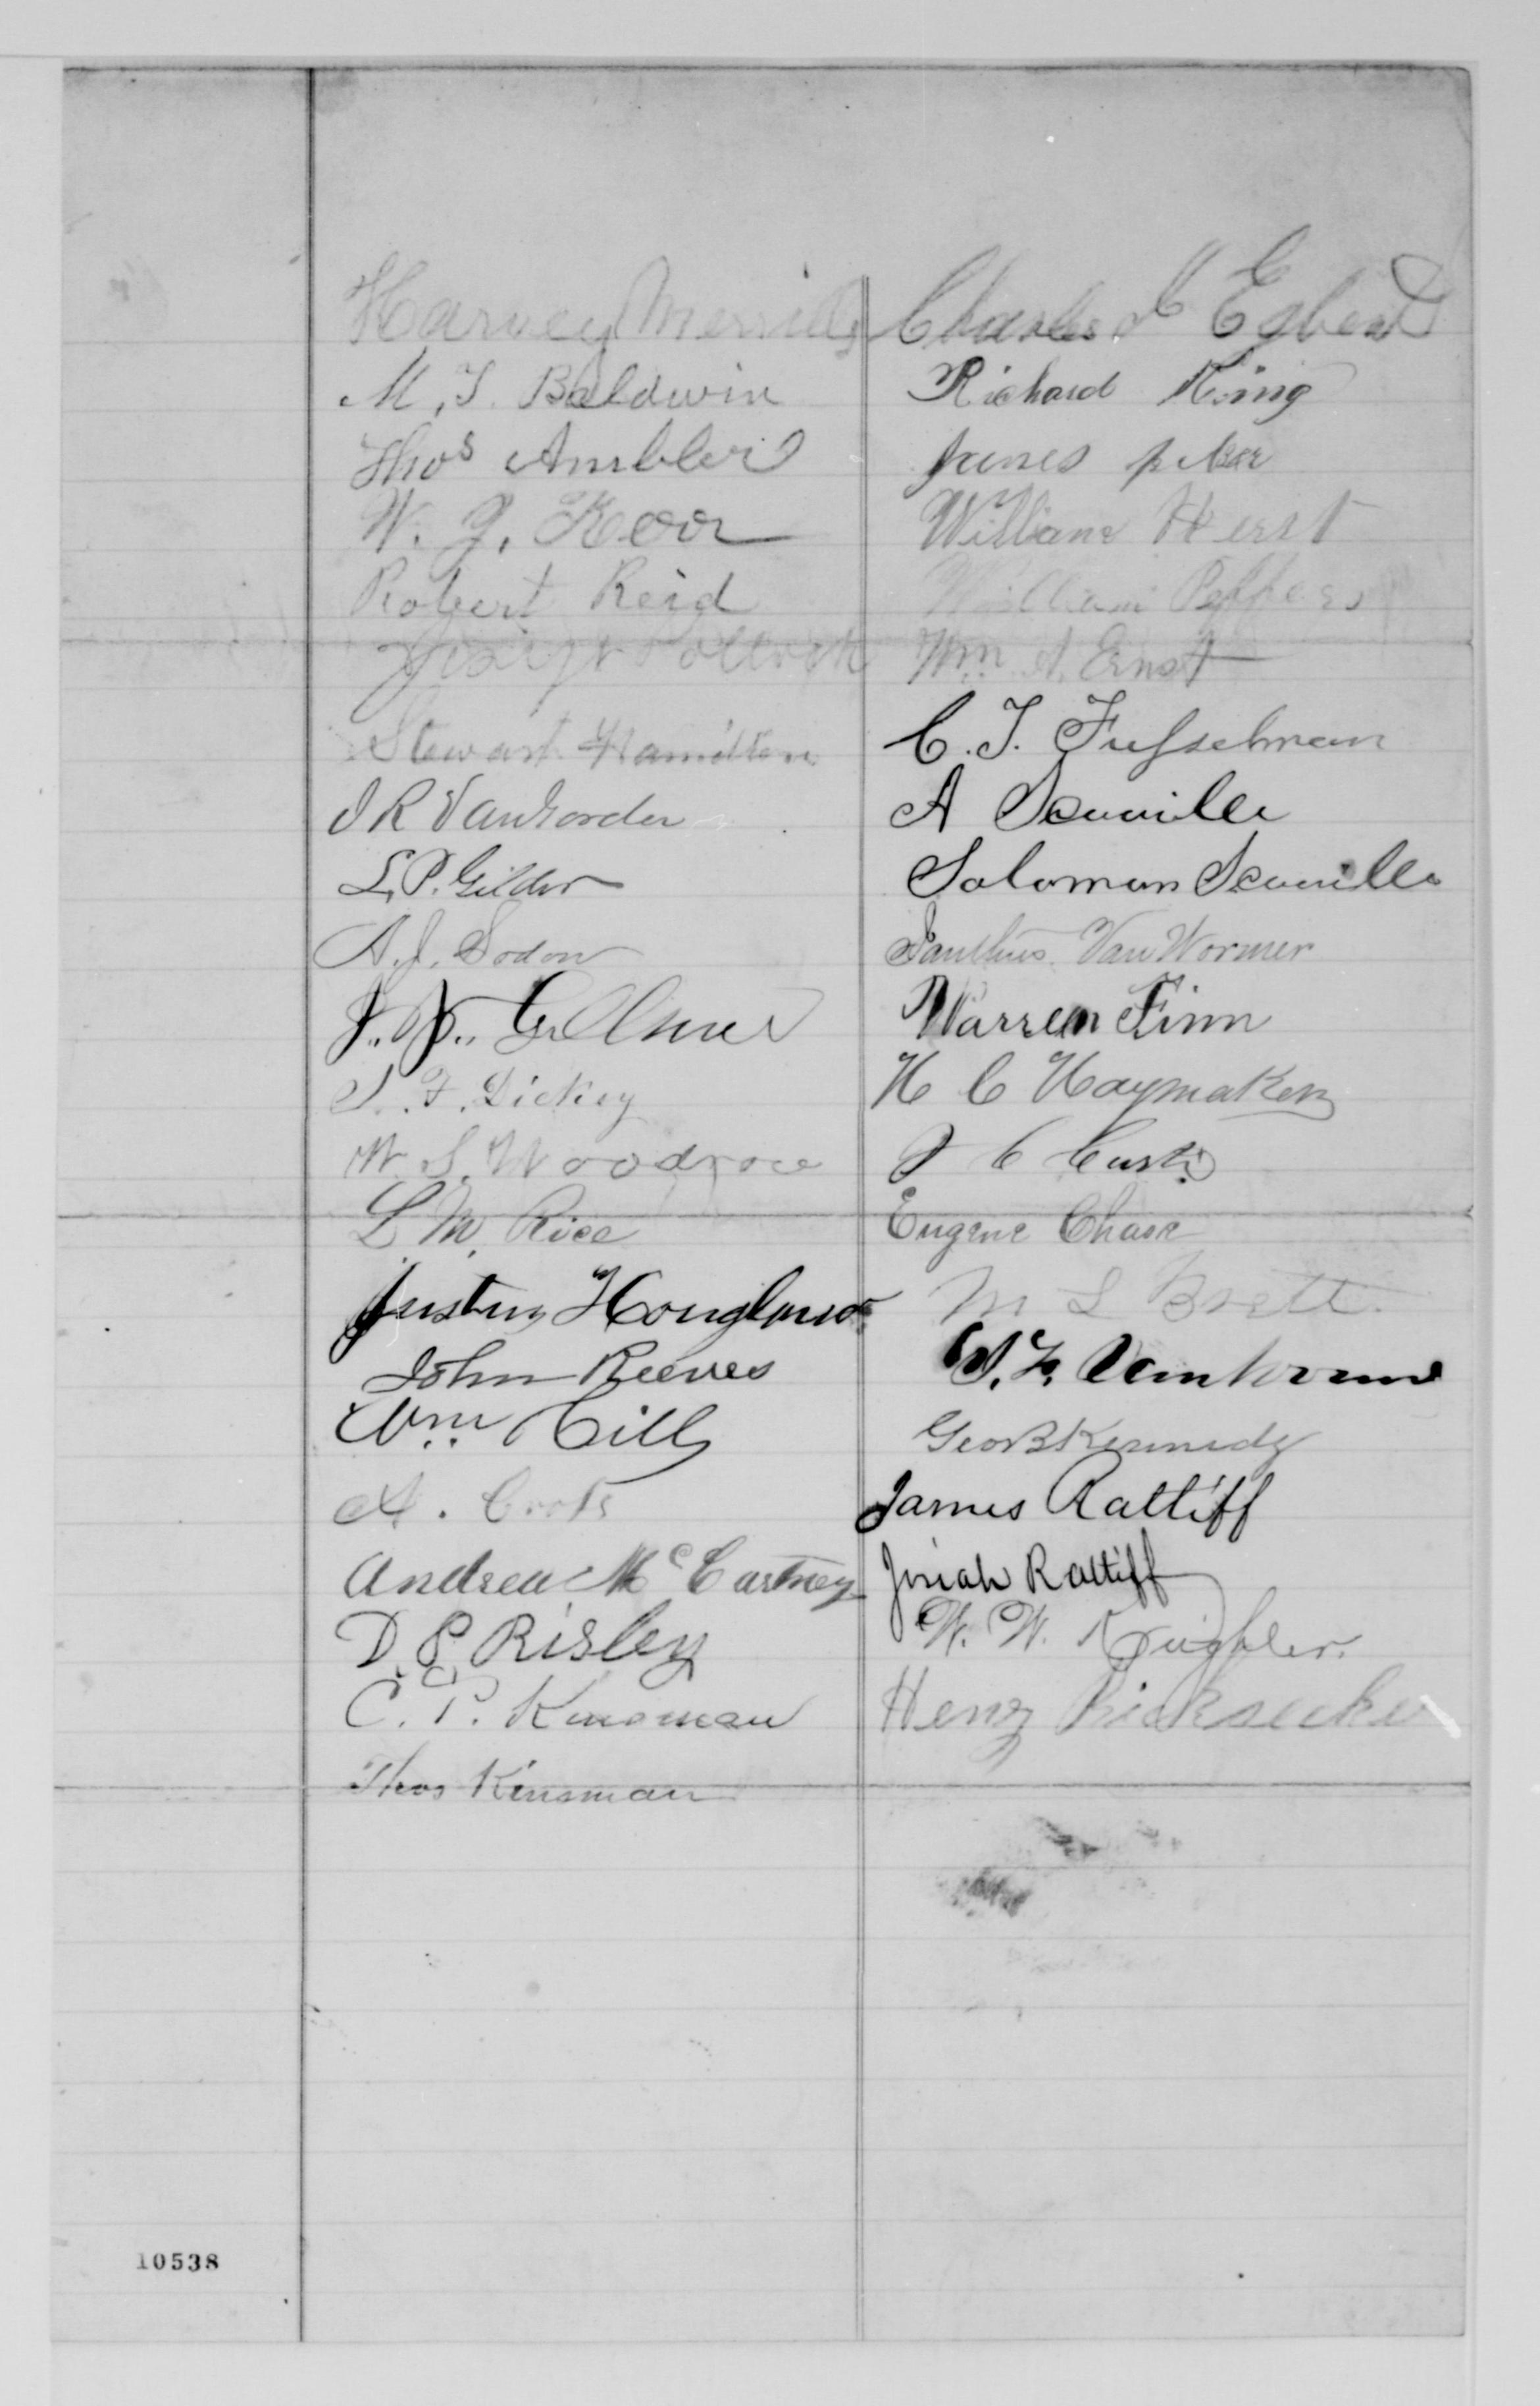 Harvey Merrill
M. T. Baldwin
Thos Ambler
W. J. Kerr
Robert Reid
Joseph Pollock
Stewart Hamilton
J R VanGorder
L. P. Gilder
A. J. Sodon
J. J. Gillmer
S. F. Dickey
W. S. Woodrow
L M. Rice
Justus Houghland
John Reeves
Wm Hill
A. Crots
Andrew McCartney
D. P. Risley
C. P. Kinsman
Thos Kinsman
Charles Egbert
Richard King
James
William Herst
William Peffers
Wm. A. Ernst
C. T. Fusselman
A Scoville
Solomon Scoville
Janthus VanWormer
Warren Finn
H C Haymaker
J C Curtis
Eugene Chase
M L Brett
W. F. Vanhorne
Geo B Kennedy
James Ratliff
Josiah Ratliff
W. W.
Henry Ricksecker
10538